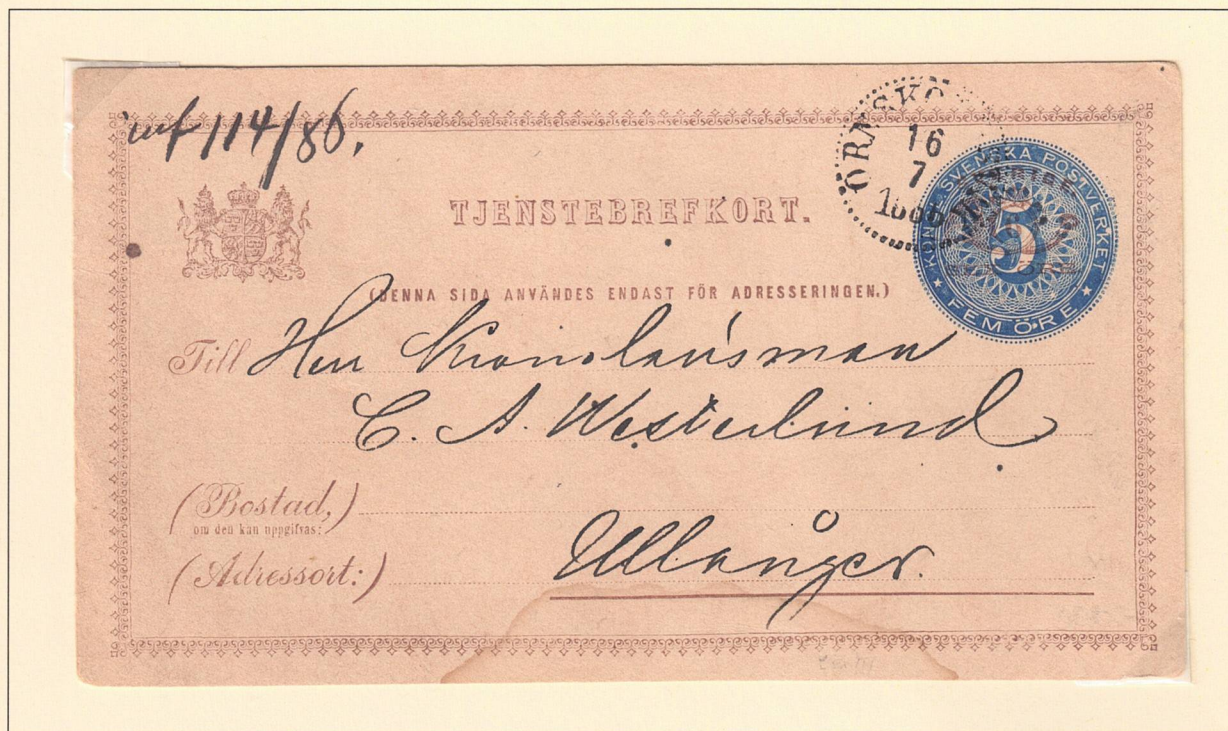 inf 114/86.
ÖRNSKÖ
16
7
1886
KONGL. SVENSKA POSTVERKET
5
FEM ÖRE
TJENSTEBREFKORT.
(DENNA SIDA ANVÄNDES ENDAST FÖR ADRESSERINGEN.)
Till Herr Kronolänsman
C. A. Westerlund
(Bostad,)
om den kan uppgifvas:
(Adressort:) Ullånger.